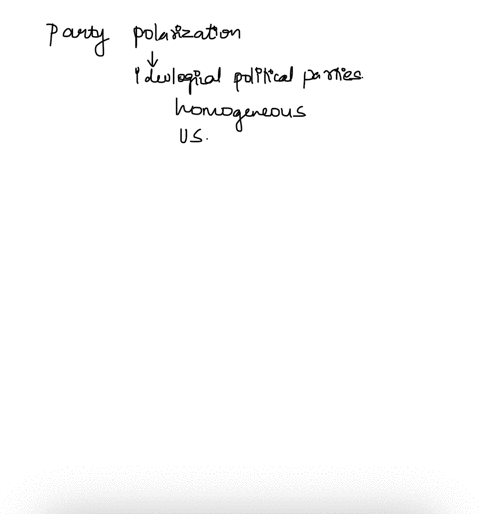 Party polarization
↓
Ideological political parties.
homogeneous
US.